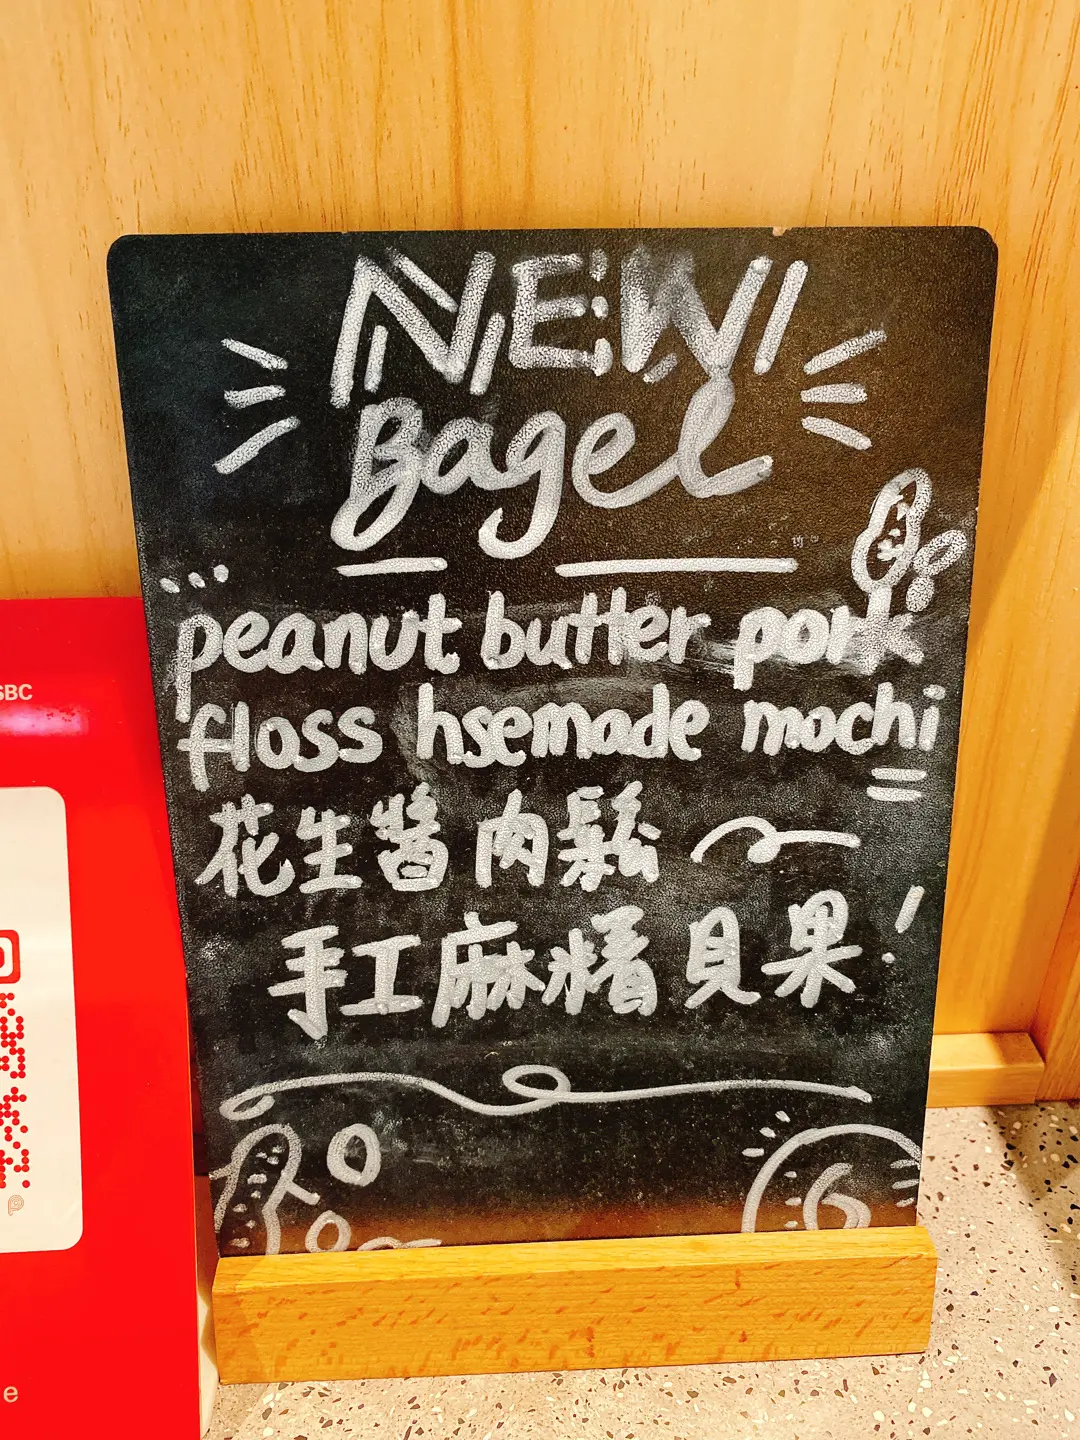 NEW
Bagel
peanut butter pork
floss hsemade mochi
花生醬肉鬆
手工麻糬貝果!
SBC
e